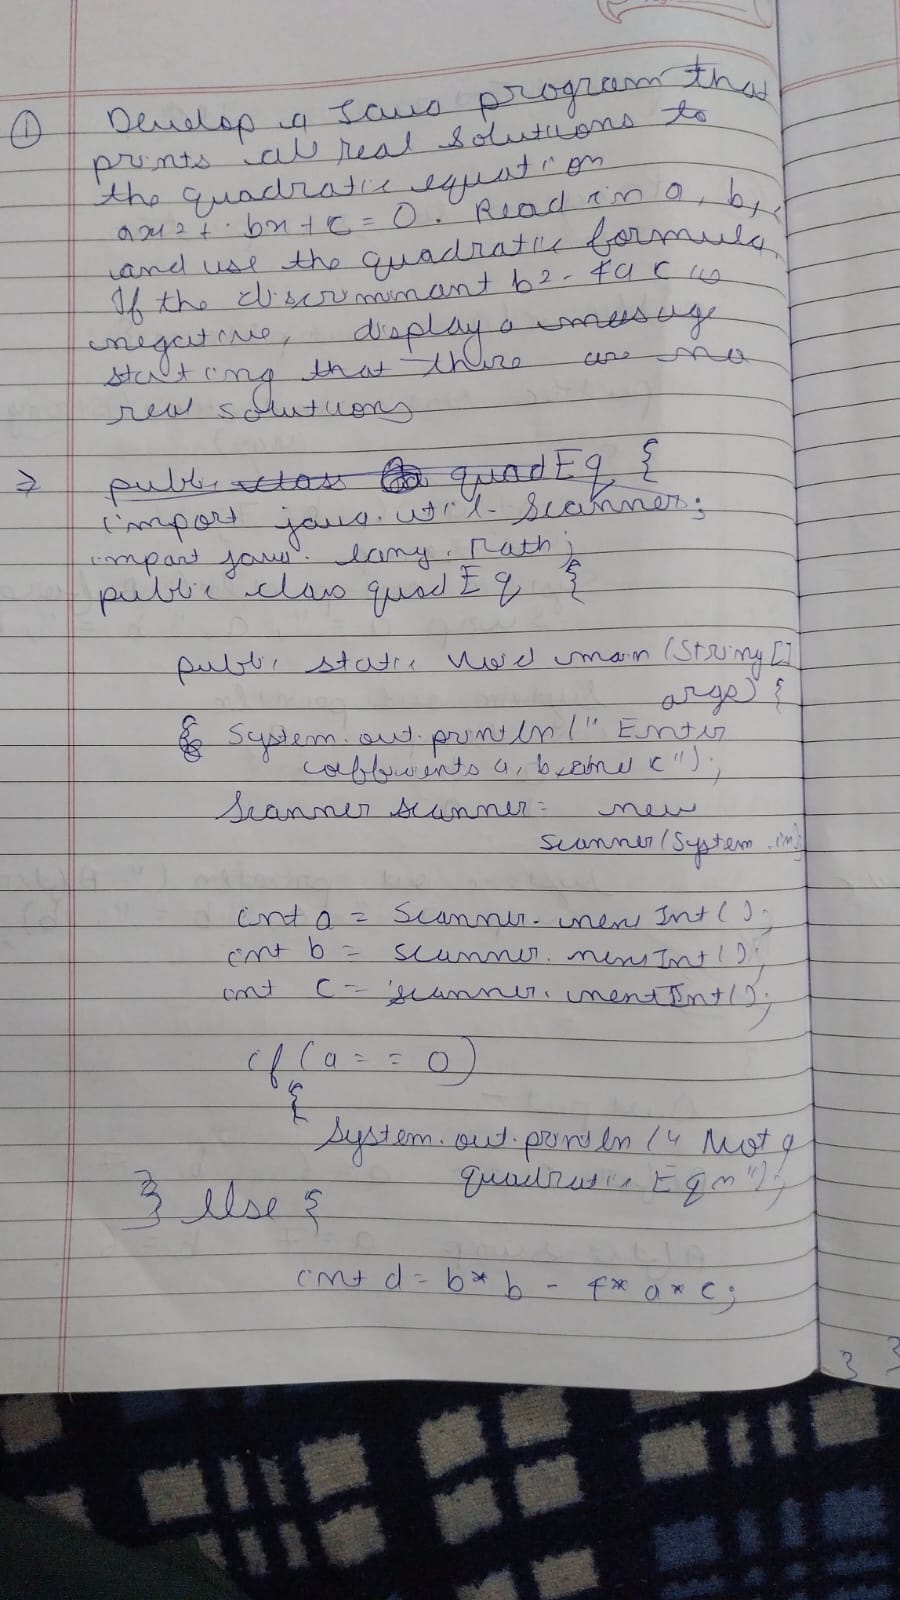 ① Develop a Java program that
prints all real solutions to
the quadratic equation
ax2+bx+c=0. Read in a, b, c
and use the quadratic formula
If the discriminant b2-4ac is
negative, display a message
stating that there are no
real solutions
⇒ public class quadEq {
import java.util.Scanner;
import java.lang.Math;
public class quadEq {
public static void main (String []
args) {
System.out.println (" Enter
coefficients a, b, and c");
Scanner scanner = new
Scanner (System.in);
int a = Scanner. next Int ();
int b = scanner. next Int ();
int c = scanner. next Int ();
if (a == 0)
{
System.out.println (" Not a
quadratic Eqn");
} else {
int d = b*b - 4*a*c;
3 3